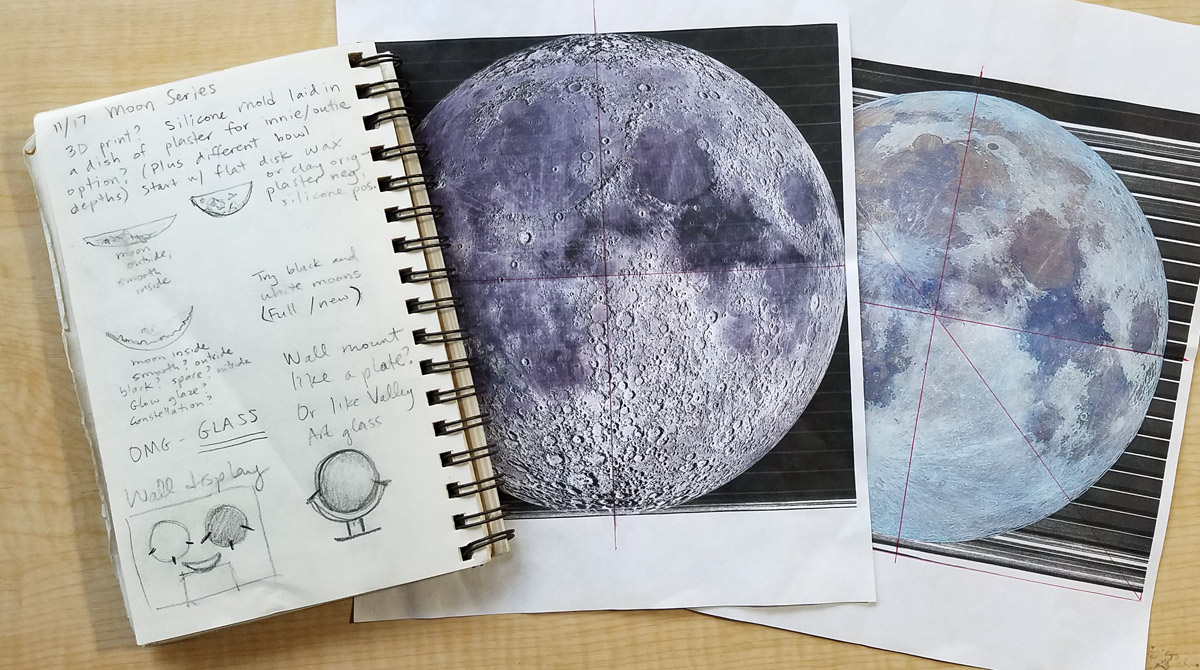 11/17 Moon Series
3D print? silicone mold laid in
a dish of plaster for innie/outie
option? (plus different bowl
depths) start w/ flat disk wax
or clay orig-
plaster neg-
silicone pos.
moon
outside,
smooth
inside
moon inside
smooth? outside
black? space? outside
Glow glaze?
Constellation?
OMG - GLASS
Wall display
Try black and
white moons
(Full/new)
Wall mount
like a plate?
Or like Valley
Art glass